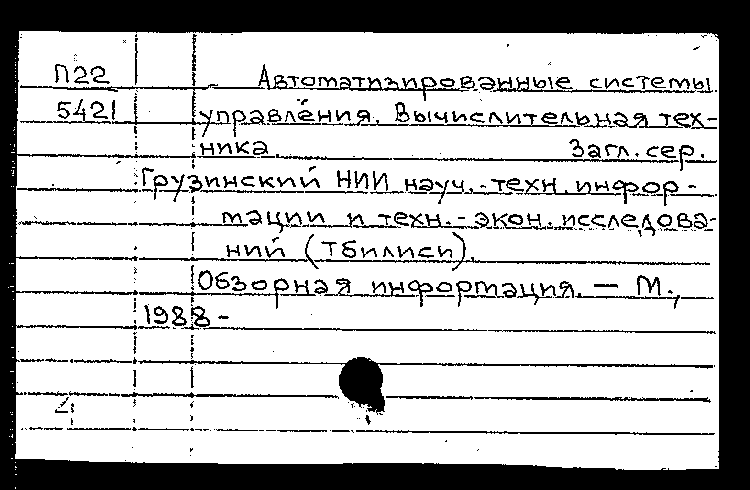 П22 Автоматизированные системы
5421 управления. Вычислительная тех-
ника Загл. сер.
Грузинский НИИ науч.-техн. инфор-
мации и техн.-экон. исследова-
ний (Тбилиси).
Обзорная информация. — М.,
1988 -